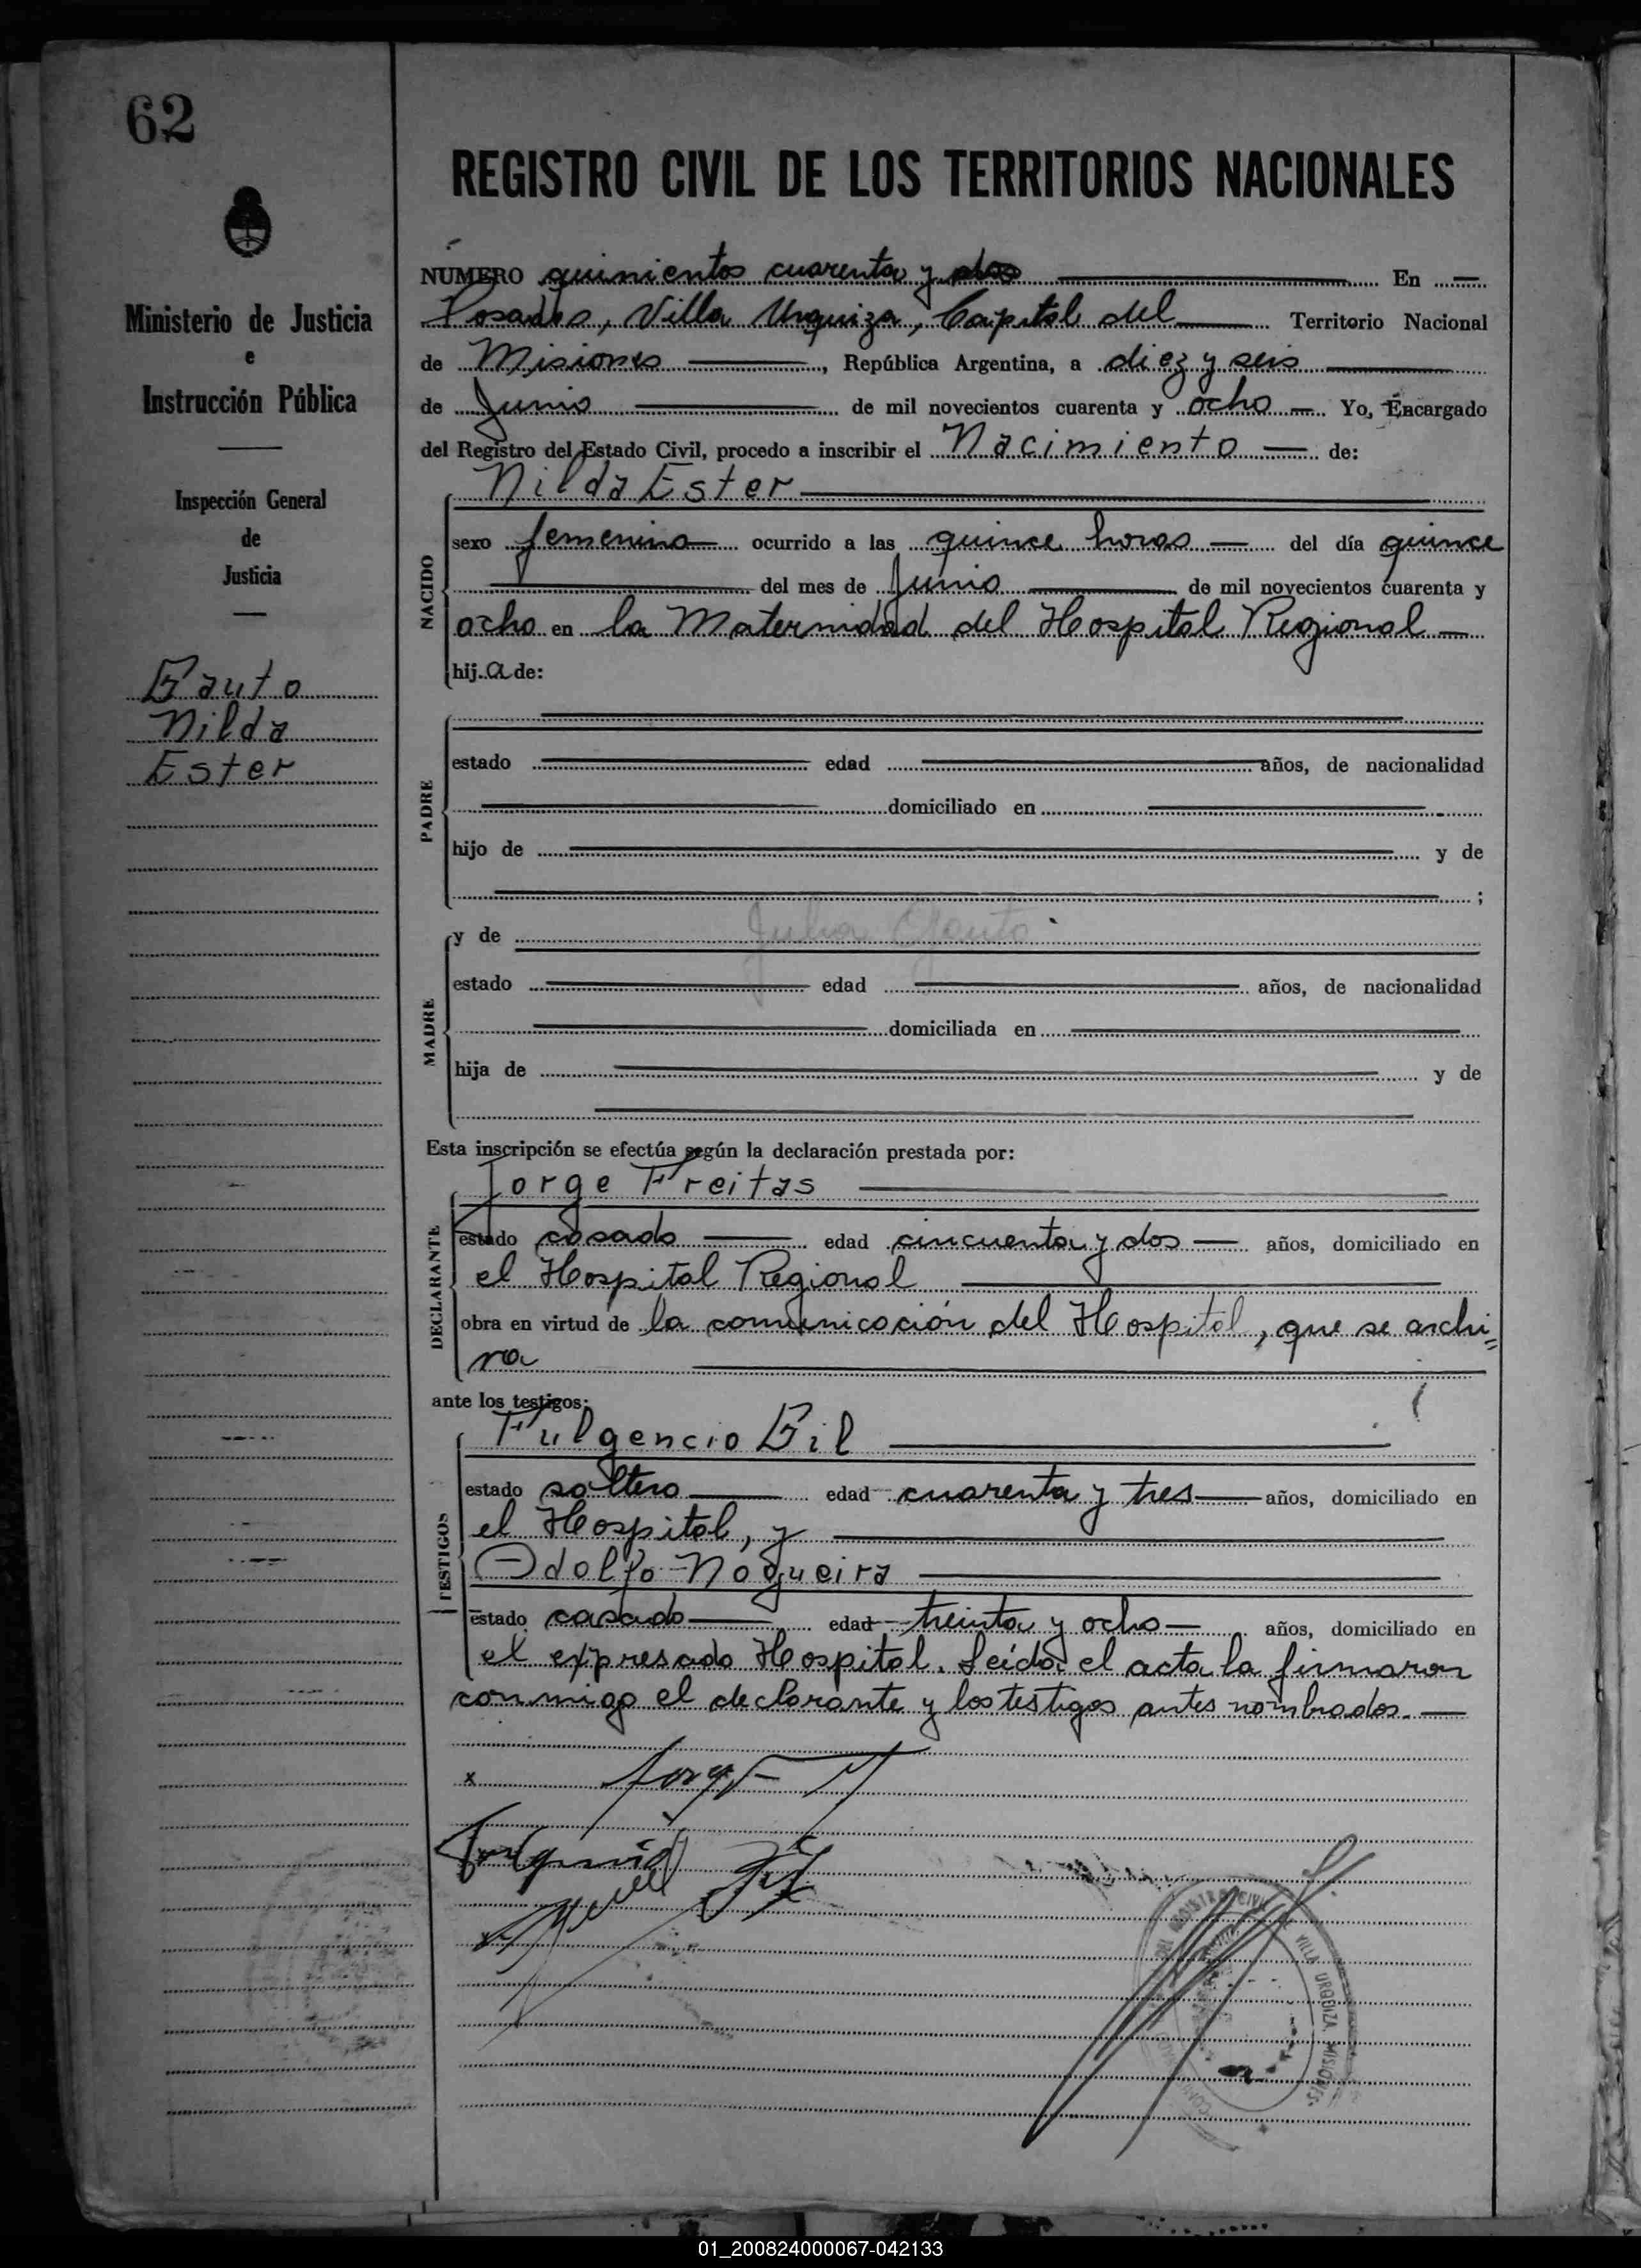 62
REGISTRO CIVIL DE LOS TERRITORIOS NACIONALES
Ministerio de Justicia
e
Instrucción Pública
Inspección General
de
Justicia
Gauto
Nilda
Ester
NUMERO quinientos cuarenta y dos En
Posadas, Villa Urquiza, Capital del Territorio Nacional
de Misiones, República Argentina, a diez y seis
de Junio de mil novecientos cuarenta y ocho Yo, Encargado
del Registro del Estado Civil, procedo a inscribir el Nacimiento de:
Nilda Ester
NACIDO
sexo femenino ocurrido a las quince horas del día quince
del mes de Junio de mil novecientos cuarenta y
ocho en la Maternidad del Hospital Regional
hij a de:
PADRE
estado edad años, de nacionalidad
domiciliado en
hijo de y de
;
MADRE
y de Julia Gauto
estado edad años, de nacionalidad
domiciliada en
hija de y de
Esta inscripción se efectúa según la declaración prestada por:
DECLARANTE
Jorge Freitas
estado casado edad cincuenta y dos años, domiciliado en
el Hospital Regional
obra en virtud de la comunicación del Hospital, que se archi=
va
ante los testigos:
TESTIGOS
Fulgencio Gil
estado soltero edad cuarenta y tres años, domiciliado en
el Hospital, y
Odolfo Nogueira
estado casado edad treinta y ocho años, domiciliado en
el expresado Hospital. Leída el acta la firmaron
conmigo el declarante y los testigos antes nombrados.
x
REGISTRO CIVIL
VILLA URQUIZA MISIONES
01_200824000067-042133